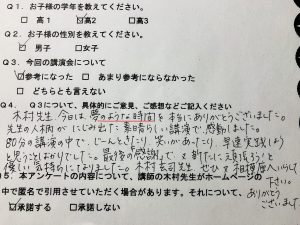 Q1. お子様の学年を教えてください。
□高1 ☑高2 □高3
Q2. お子様の性別を教えてください。
☑男子 □女子
Q3. 今回の講演会について
☑参考になった □あまり参考にならなかった
□どちらとも言えない
Q4. Q3について、具体的にご意見、ご感想などご記入ください
木村先生、今日は夢のような時間を本当にありがとうございました。
先生の人柄がにじみ出た素晴らしい講演で、感動しました。
80分の講演の中で、じーんときたり、笑いがあったり、早速実践しよう
と思うことばかりでした。最後の「感謝」で、また新たに頑張ろうと
優しい気持ちになりました。木村玄司先生、ぜひまた相模原へいらして
下さい。
5. 本アンケートの内容について、講師の木村先生がホームページの
中で匿名で引用させていただく場合があります。それについて、
ありがとう
ございました
☑承諾する □承諾しない